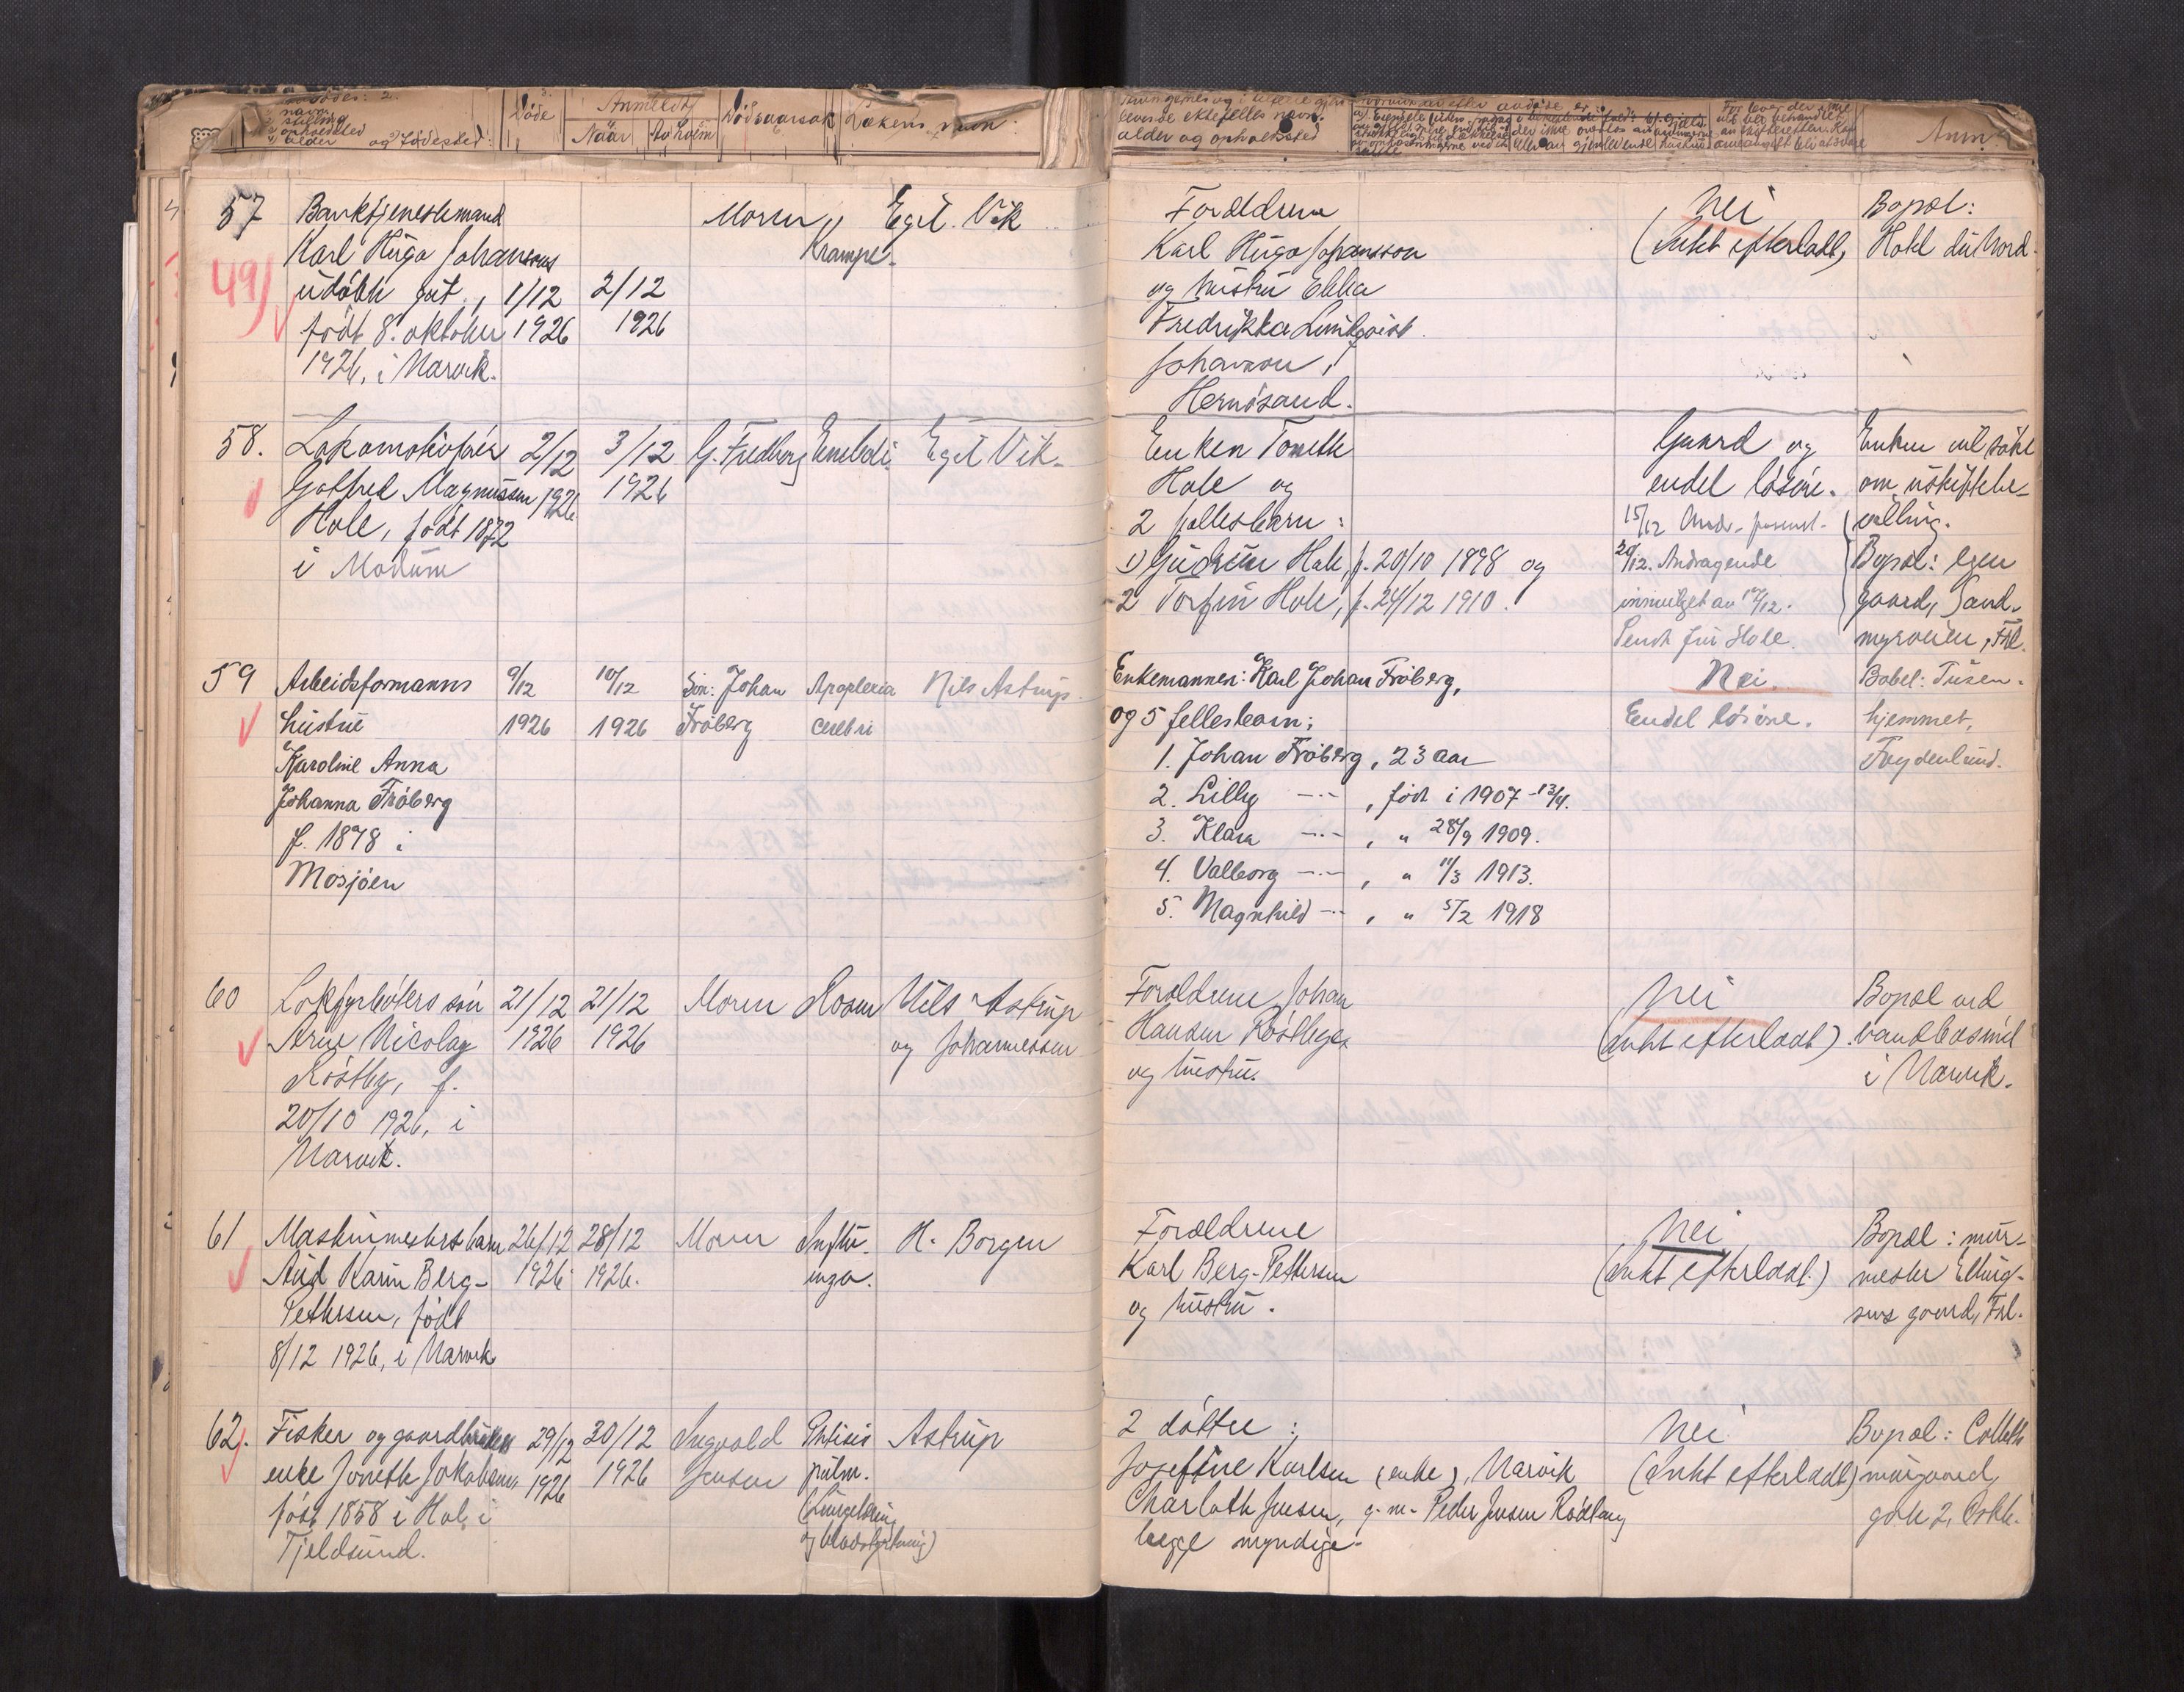 navn
stilling
opholdssted
alder og fødested:
Døde
Anmeldt
Naar Av hvem
Dødsaarsak
Lækens navn:
levende ektefelles navn,
alder og opholdssted
Anm.
57
49)
Bankfjenestemand
Karl Hugo Johanssons
udøbte gut,
født 8. oktober
1926, i Narvik.
1/12
1926
2/12
1926
Moren
Krampe.
Egil Vik
Forældrene
Karl Hugo Johansson
og hustru Ebba
Fredrikka Lindkvist
Johansson,
Hernösand.
Nei
(Intet efterladt)
Bopæl:
Hotel du Nord.
58.
Lokomotivfører
Gotfred Magnussen
Hole, født 1872
i Modum
2/12
1926
3/12
1926
G. Fredberg
Emboli
Egil Vik
Enken Tomette
Hole og
2 fellesbarn:
1) Gudrun Hole, f. 20/10 1898 og
2 Torfin Hole, f. 24/12 1910.
Gaard og
endel løsøre.
15/12
20/12. Andragende
innvilget av 17/12.
Sendt fru Hole.
Enken vil søke
om uskiftebe-
villing.
Bopæl: egen
gaard, Sand-
myrveien, Frl.
59
Arbeidsformanns
hustru
Karoline Anna
Johanna Fröberg
f. 1878 i
Mosjöen
9/12
1926
10/12
1926
Sön: Johan
Fröberg
Apoplexia
cerebri
Nils Astrup.
Enkemannen: Karl Johan Fröberg,
og 5 fellesbarn:
1. Johan Fröberg, 23 aar
2. Lilly —"— , född i 1907 - 13/4.
3. Klara —"— , " 28/9 1909.
4. Valborg —"— , " 11/3 1913.
5. Magnhild —"— , " 5/2 1918
Nei.
Endel løsøre.
Bobel: Tusen-
hjemmet,
Frydenlund.
60
Lokfyrbøters søn
Arne Nicolay
Röstby, f.
20/10 1926, i
Narvik.
21/12
1926
21/12
1926
Moren
Nils Astrup
og Johannessen
Forældrene Johan
Hansen Röstby
og hustru.
Nei
(Intet efterladt).
Bopæl ved
vandbasinet
i Narvik.
61
Maskinmesters barn
Aud Karin Berg-
Pettersen, født
8/12 1926, i Narvik
26/12
1926
28/12
1926.
Moren
Influ-
enza.
H. Borgen
Forældrene
Karl Berg-Pettersen
og hustru.
Nei
(Intet efterladt.)
Bopæl: mur-
mester Elling-
sens gaard, Frl.
62.
Fisker og gaardbrukers
enke Jonette Jakobsen,
født 1858 i Hol i
Tjeldsund.
29/12
1926
30/12
1926
Ingvald
Jensen
Phtisis
pulm.
(Lungetæring
og blodstyrtning)
Astrup
2 døttre:
Josefine Karlsen (enke), Narvik
Charlotte Jensen, g. m. Peder Jensen Rödtang
begge myndige.
Nei
(Intet efterladt)
Bopæl: Colletts
murgaard,
gate 2,